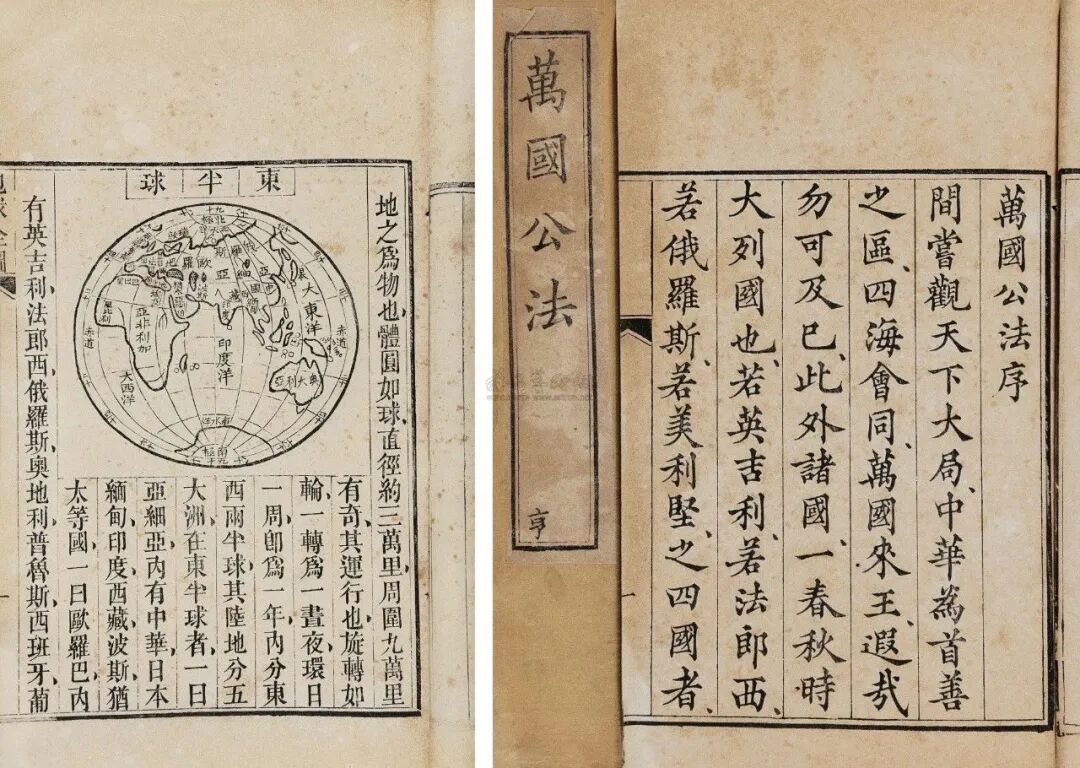 東半球
地之爲物也、體圓如球、直徑約三萬里、周圍九萬里
有奇、其運行也、旋轉如
輪、一轉爲一晝夜、環日
一周、卽爲一年、內分東
西兩半球、其陸地分五
大洲、在東半球者、一曰
亞細亞、內有中華、日本、
緬甸、印度、西藏、波斯、猶
太等國、一曰歐羅巴、內
有英吉利、法郎西、俄羅斯、奧地利、普魯斯、西班牙、葡
大東洋
赤道
奧大利亞
印度洋
亞非利加
大西洋
赤道
萬國公法
亨
萬國公法序
間嘗觀天下大局、中華為首善
之區、四海會同、萬國來王、遐哉
勿可及已、此外諸國、一春秋時
大列國也、若英吉利、若法郎西、
若俄羅斯、若美利堅、之四國者、